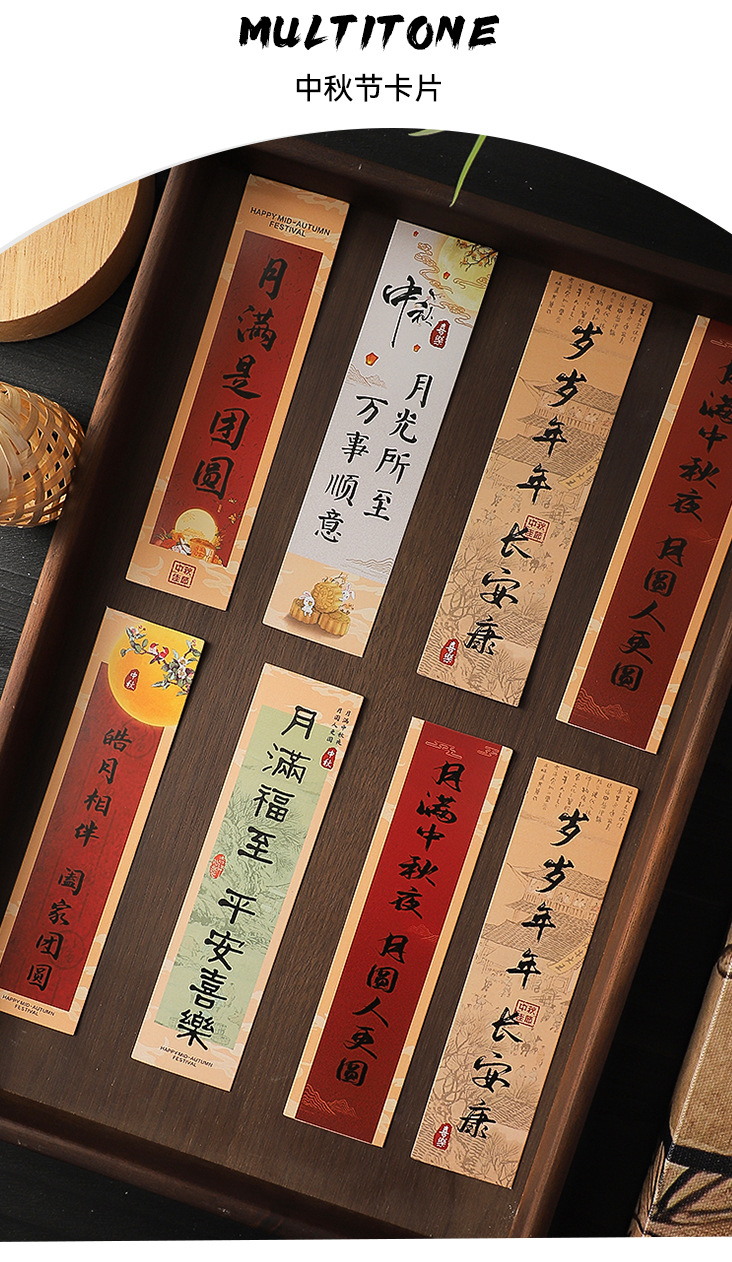 MULTITONE
中秋节卡片
HAPPY MID-AUTUMN
FESTIVAL
月满是团圆
中秋
佳節
中秋
喜樂
月光所至
万事顺意
岁岁年年 长安康
中秋
佳節
喜樂
月满中秋夜 月圆人更圆
中秋
皓月相伴 阖家团圆
HAPPY MID-AUTUMN
FESTIVAL
月满中秋夜
月圆人更圆
中秋
月滿福至 平安喜樂
HAPPY MID-AUTUMN
FESTIVAL
月满中秋夜 月圆人更圆
岁岁年年 长安康
中秋
佳節
喜樂